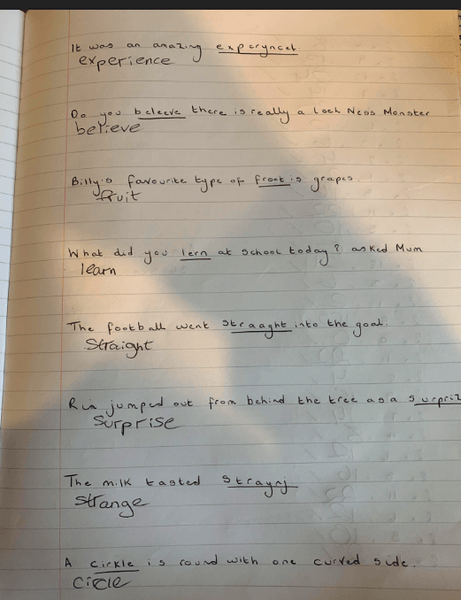 It was an amazing experyncet.
experience
Do you beleeve there is really a Loch Ness Monster
believe
Billy's favourite type of is grapes.
fruit
What did you lern at school today? asked Mum
learn
The football went straaght into the goal.
Straight
jumped out from behind the tree as a surpriz
Surprise
The milk tasted straynj
strange
A cirkle is round with one curved side.